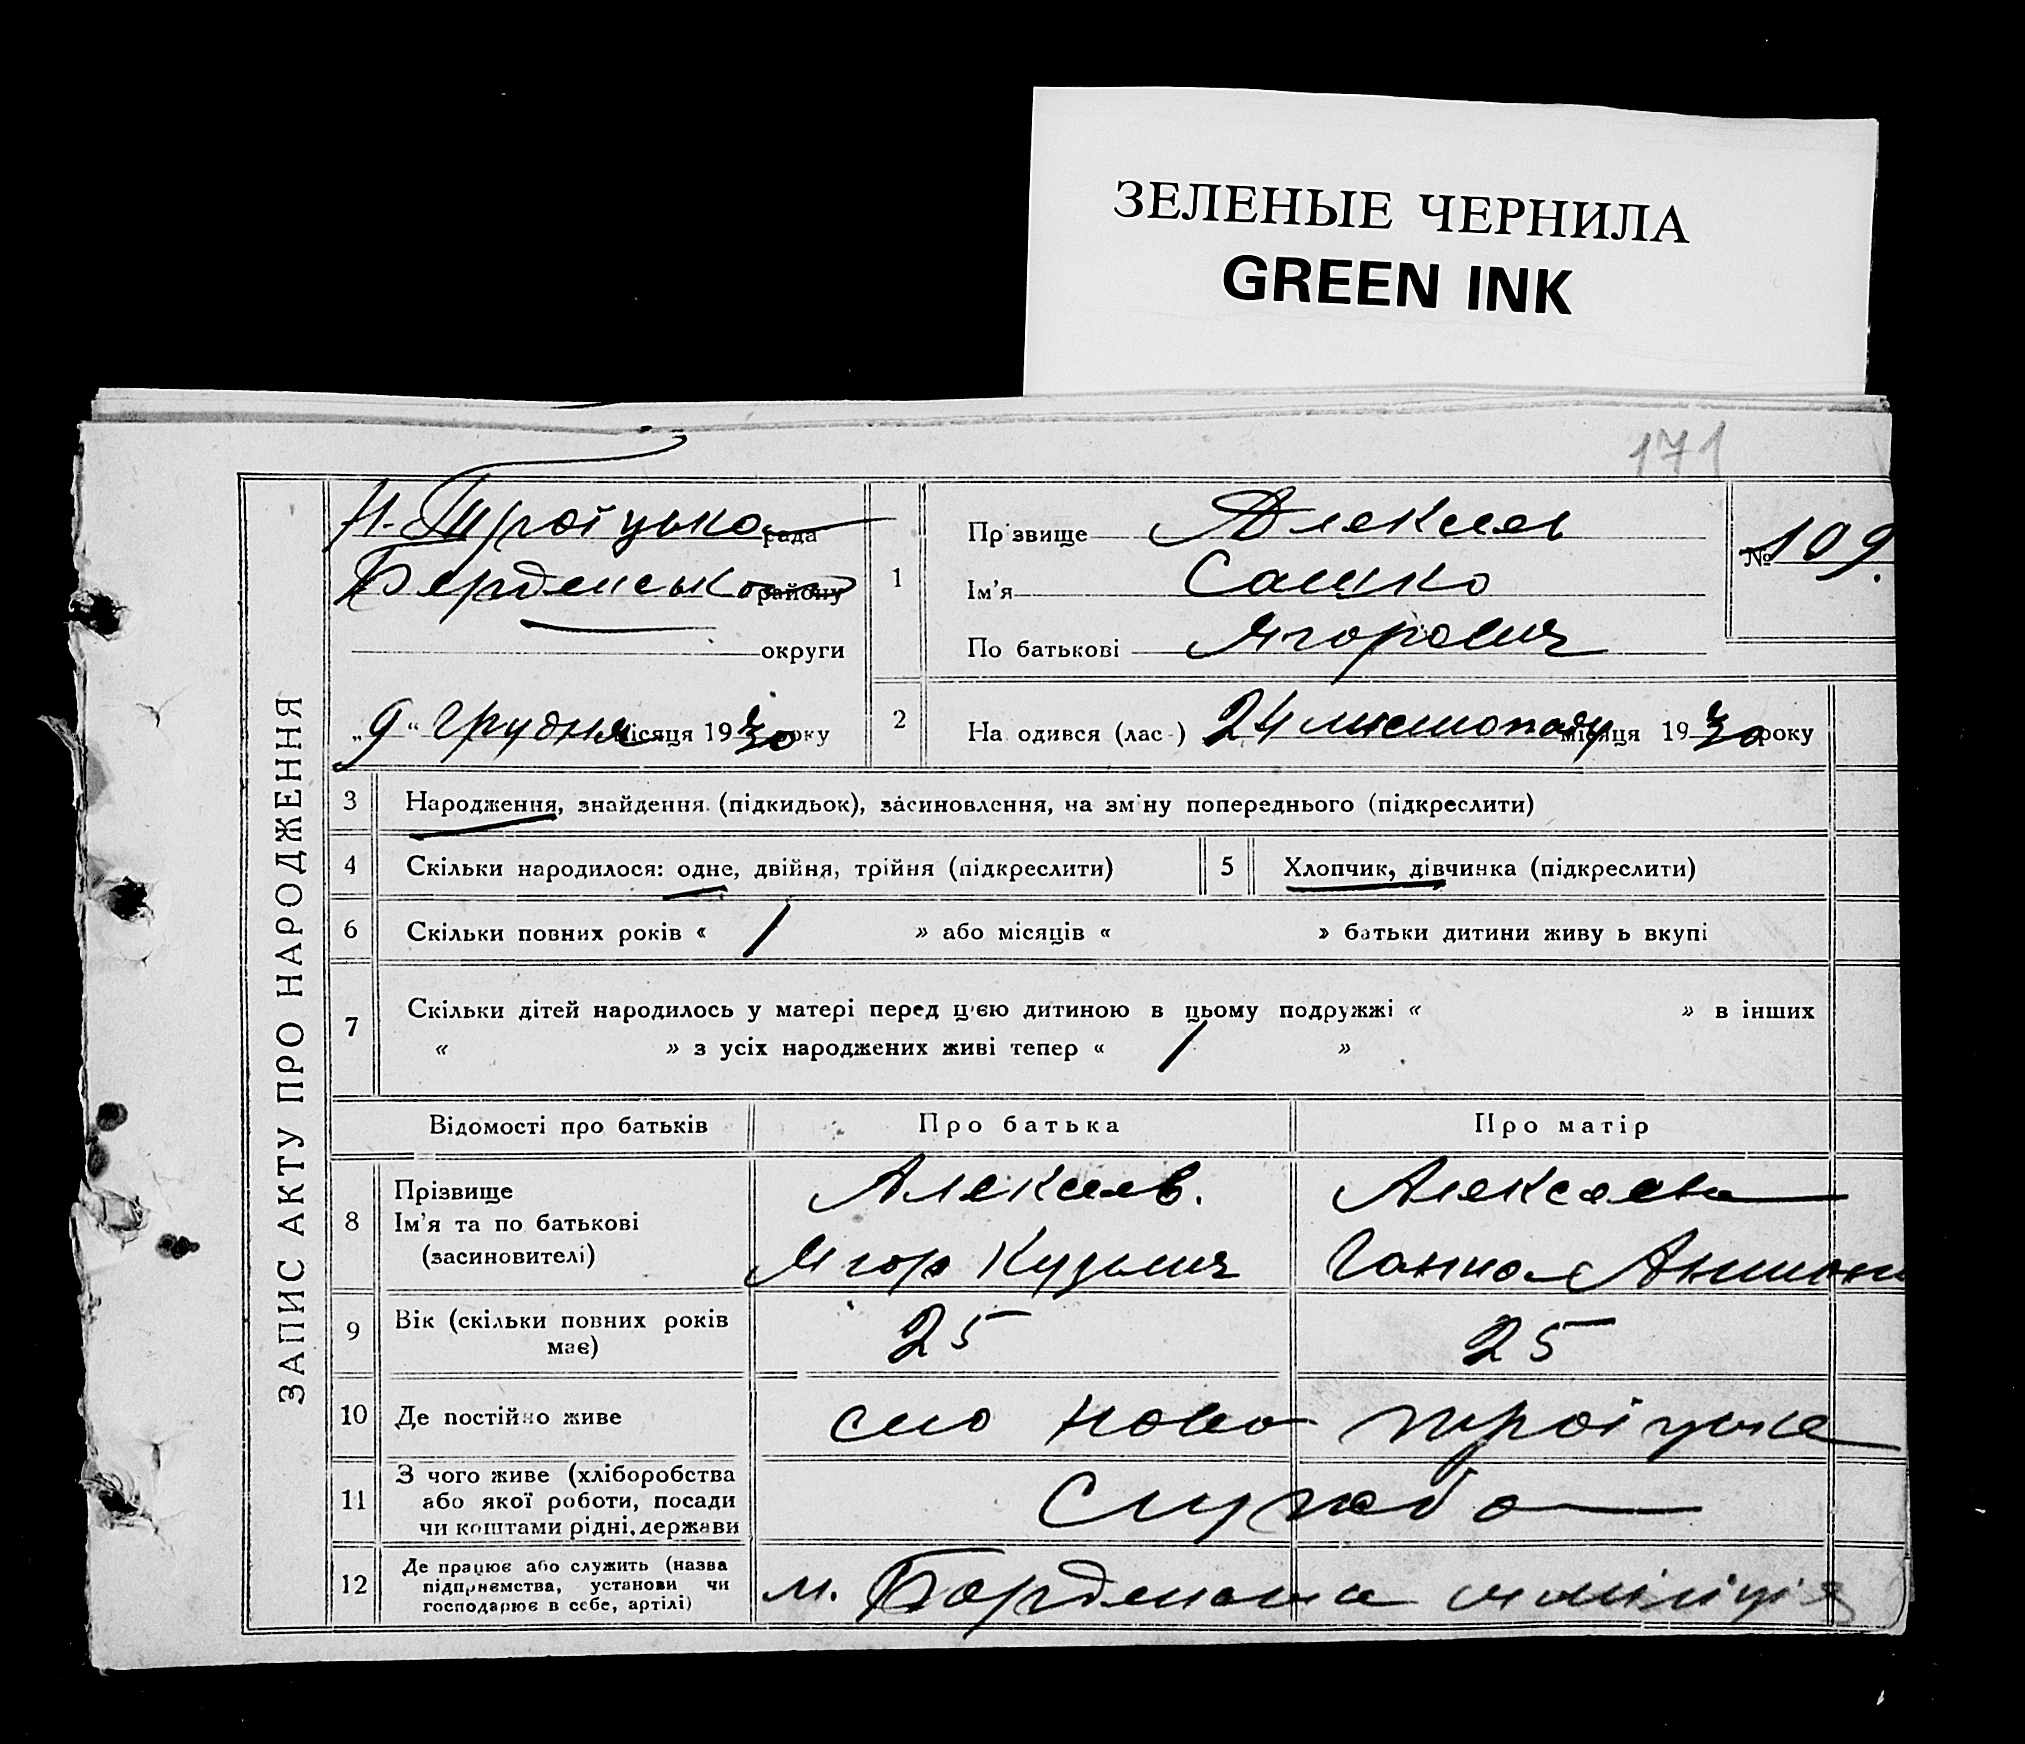 ЗЕЛЕНЫЕ ЧЕРНИЛА
GREEN INK
171
ЗАПИС АКТУ ПРО НАРОДЖЕННЯ
Н-Троїцько рада
Бердянсько району
округи
„9“ Грудня місяця 1930 року
1
Прізвище Алексеев
Ім'я Сашко
По батькові Ягорович
№ 109.
2
На одився (лас-) 24 листопаду місяця 1930 року
3 Народження, знайдення (підкидьок), засиновлення, на зм'ну попереднього (підкреслити)
4 Скільки народилося: одне, двійня, трійня (підкреслити) 5 Хлопчик, дівчинка (підкреслити)
6 Скільки повних років « / » або місяців « » батьки дитини живу ь вкупі
7 Скільки дітей народилось у матері перед ц'єю дитиною в цьому подружжі « » в інших
« » з усіх народжених живі тепер « / »
Відомості про батьків Про батька Про матір
8 Прізвище
Ім'я та по батькові
(засиновителі)
Алексеев.
Ягор Кузьмич
Алексеева
Ганна Антон
9 Вік (скільки повних років
має)
25 25
10 Де постійно живе село Ново троїцьке
11 З чого живе (хліборобства
або якої роботи, посади
чи коштами рідні, держави
Служба
12 Де працює або служить (назва
підприємства, установи чи
господарює в себе, артілі)
м. Бердянськ міліція